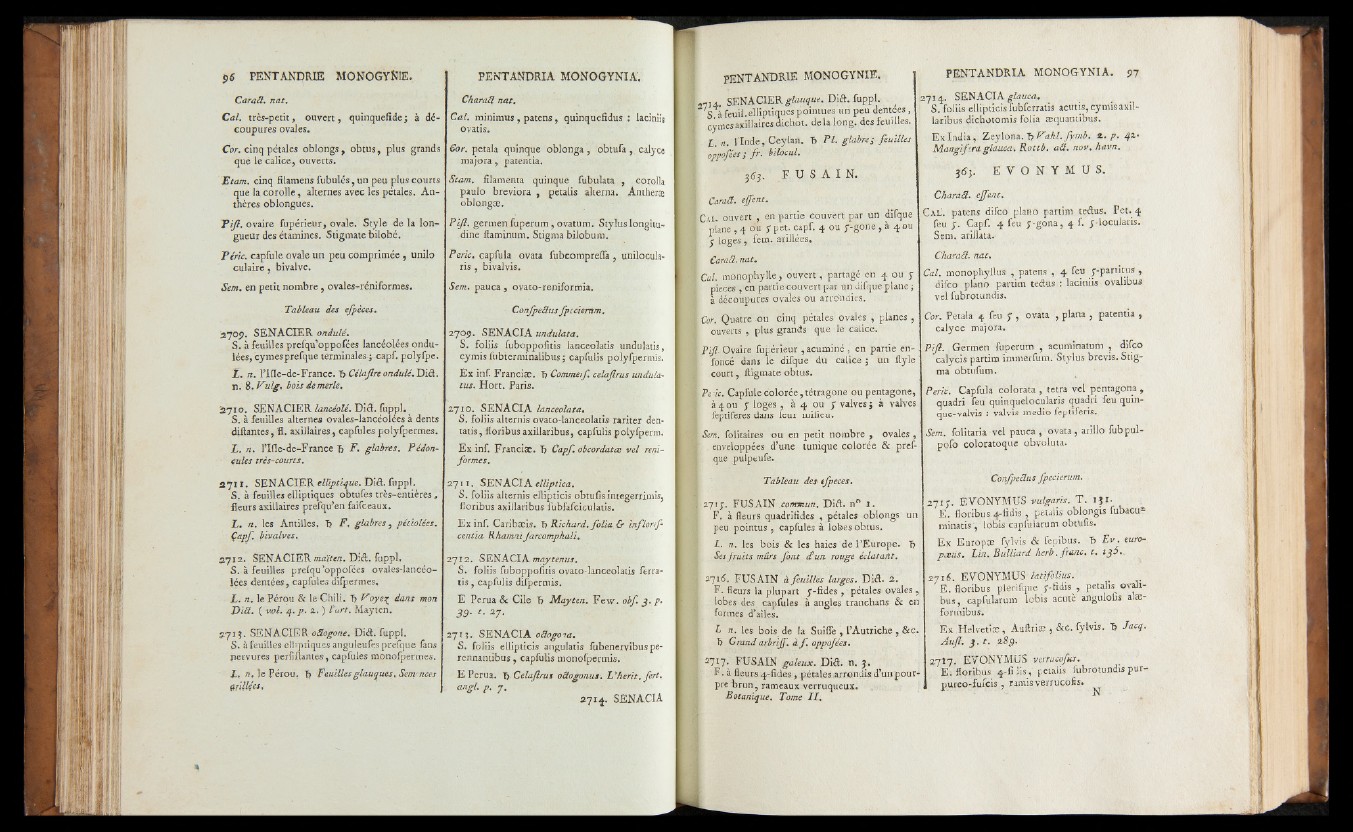 96 PENTANDRIE MONOGYNIE.
Caract. nat.
Cal. très-petit, ouvert, quinquefide; à dé-
coupures ovales.
Cor. cinq pétales oblongs, obtus, plus grands
que le calice, ouverts.
Etam. cinq filamens subulés, un peu plus courts
que la corolle, alternes avec les pétales. An-
thères oblongues.
Pist. ovaire supérieur, ovale. Style de la lon-
gueur des étamines. Stigmate bilobé.
Péric. capsule ovale un peu comprimée, unilo-
culaire, bivalve.
Sem. en petit nombre, ovales-réniformes.
Tableau des espèces.
2709. SENACIER ondulé.
S. à feuilles presqu'opposées lancéolées ondu-
lées, cymes presque terminales; caps. polysp.
L. n. l'Isle-de-France. ♄ Célastre ondulé. Dict.
n. 8. Vulg. bois de merle.
2710. SENACIER lancéolé. Dict. suppl.
S. à feuilles alternes ovales-lancéolées à dents
distantes, fl. axillaires, capsules polyspermes.
L. n. l'Isle-de-France ♄ F. glabres. Pédon-
cules très-courts.
2711. SENACIER elliptique. Dict. suppl.
S. à feuilles elliptiques obtuses très-entières,
fleurs axillaires presqu'en faisceaux.
L. n. les Antilles. ♄ F. glabres, pétiolées.
Caps. bivalves.
2712. SENACIER maïten. Dict. suppl.
S. à feuilles presqu'opposées ovales-lancéo-
lées dentées, capsules dispermes.
L. n. le Pérou & le Chili. ♄ Voyez dans mon
Dict. ( vol. 4. p. 2. ) l'art. Mayten.
2713. SENACIER octogone. Dict. suppl.
S. à feuilles elliptiques anguleuses presque sans
nervures persistantes, capsules monospermes.
L. n. le Pérou. ♄ Feuilles glauques. Semences
arillées.
PENTANDRIA MONOGYNIA.
Charact nat.
Cal. minimus, patens, quinquefidus : laciniis
ovatis.
Cor. petala quinque oblonga, obtusa, calyce
majora, patentia.
Stam. filamenta quinque subulata, corolla
paulo breviora, petalis alterna. Antheræ
oblongæ.
Pist. germen superum, ovatum. Stylus longitu-
dine staminum. Stigma bilobum.
Peric. capsula ovata subcompressa, unilocula-
ris, bivalvis.
Sem. pauca, ovato-reniformia.
Conspectus specierum.
2709. SENACIA undulata.
S. foliis suboppositis lanceolatis undulatis,
cymis subterminalibus; capsulis polyspermis.
Ex inf. Franciæ. ♄ Commers. celastrus undula-
tus. Hort. Paris.
2710. SENACIA lanceolata.
S. foliis alternis ovato-lanceolatis rariter den-
tatis, floribus axillaribus, capsulis polysperm.
Ex inf. Franciæ. ♄ Caps. obcordatæ vel reni-
formes.
2711. SENACIA elliptica.
S. foliis alternis ellipticis obtusis integerrimis,
floribus axillaribus subfasciculatis.
Ex inf. Caribæis. ♄ Richard. folia & inflores-
centia Rhamni sarcomphali.
2712. SENACIA maytenus.
S. foliis suboppositis ovato-lanceolatis serra-
tis, capsulis dispermis.
E Perua & Cile ♄ Mayten. Few. obs. 3. p.
39. t. 27.
2713. SENACIA octogona.
S. foliis ellipticis angulatis subenervibus pe-
rennantibus, capsulis monospermis.
E Perua. ♄ Celastrus octogonus. L'herit. sert.
angl. p. 7.
2714. SENACIA
PENTANDRIE MONOGYNIE.
2714. SENACIER glauque. Dict. suppl.
S. à feuil. elliptiques pointues un peu dentées,
cymes axillaires dichot. de la long. des feuilles.
L. n. l'Inde, Ceylan. ♄ Pl. glabre; feuilles
opposées; fr. bilocul.
363. FUSAIN.
Caract. essent.
CAL. ouvert, en partie couvert par un disque
plane, 4 ou 5 pet. caps. 4 ou 5-gone, à 4 ou
5 loges, sem. arillées.
Caract. nat.
Cal. monophylle, ouvert, partagé en 4 ou 5
pieces, en partie couvert par un disque plane;
à découpures ovales ou arrondies.
Cor. Quatre ou cinq pétales ovales, planes,
ouverts, plus grands que le calice.
Pist. Ovaire supérieur, acuminé, en partie en-
foncé dans le disque du calice; un style
court, stigmate obtus.
Peric. Capsule colorée, tétragone ou pentagone,
à 4 ou 5 loges, à 4 ou 5 valves; à valves
septiferes dans leur milieu.
Sem. solitaires ou en petit nombre, ovales,
enveloppées d'une tunique colorée & pres-
que pulpeuse.
Tableau des especes.
2715. FUSAIN commun. Dict. n° 1.
F. à fleurs quadrifides, pétales oblongs un
peu pointus, capsules à lobes obtus.
L. n. les bois & les haies de l'Europe. ♄
Ses fruits mûrs sont d'un rouge éclatant.
2716. FUSAIN à feuilles larges. Dict. 2.
F. fleurs la plupart 5-fides, pétales ovales,
lobes des capsules à angles tranchans & en
formes d'ailes.
L. n. les bois de la Suisse, l'Autriche, &c.
♄ Grand arbriss. à f. opposées.
2717. FUSAIN galeux. Dict. n. 3.
F. à fleurs 4-fides, pétales arrondis d'un pour-
pre brun, rameaux verruqueux.
Botanique. Tome II.
PENTANDRIA MONOGYNIA. 97
2714. SENACIA glauca.
S. foliis ellipticis subserratis acutis, cymis axil-
laribus dichotomis folia æquantibus.
Ex India, Zeylona. ♄ Vahl. symb. 2. p. 42.
Mangifera glauca. Rottb. act. nov. havn.
363. EVONYMUS.
Charact. essent.
CAL. patens disco plano partim tectus. Pet. 4
seu 5. Caps. 4 seu 5-gona, 4 s. 5-locularis.
Sem. arillata.
Charact. nat.
Cal. monophyllus, patens, 4 seu 5-partitus,
disco plano partim tectus : laciniis ovalibus
vel subrotundis.
Cor. Petala 4 seu 5, ovata, plana, patentia,
calyce majora.
Pist. Germen superum, acuminatum, disco
calycis partim immersum. Stylus brevis. Stig-
ma obtusum.
Peric. Capsula colorata, tetra vel pentagona,
quadri seu quinquelocularis quadri seu quin-
que-valvis : valvis medio septiferis.
Sem. solitaria vel pauca, ovata, arillo subpul-
poso coloratoque obvoluta.
Conspectus specierum.
2715. EVONYMUS vulgaris. T. 131.
E. floribus 4-fidis, petalis oblongis subacu-
minatis, lobis capsularum obtusis.
Ex Europæ sylvis & sepibus. ♄ Ev. euro-
pæus. Lin. Bulliard herb. franc. t. 135.
2716. EVONYMUS latifolius.
E. floribus plerisque 5-fidis, petalis ovali-
bus, capsularum lobis acutè angulosis alæ-
formibus.
Ex Helvetiæ, Austriæ, &c. sylvis. ♄ Jacq.
Aust. 3. t. 289.
2717. EVONYMUS verrucosus.
E. floribus 4-fidis, petalis subrotundis pur-
pureo-fuscis, ramis verrucosis.
N